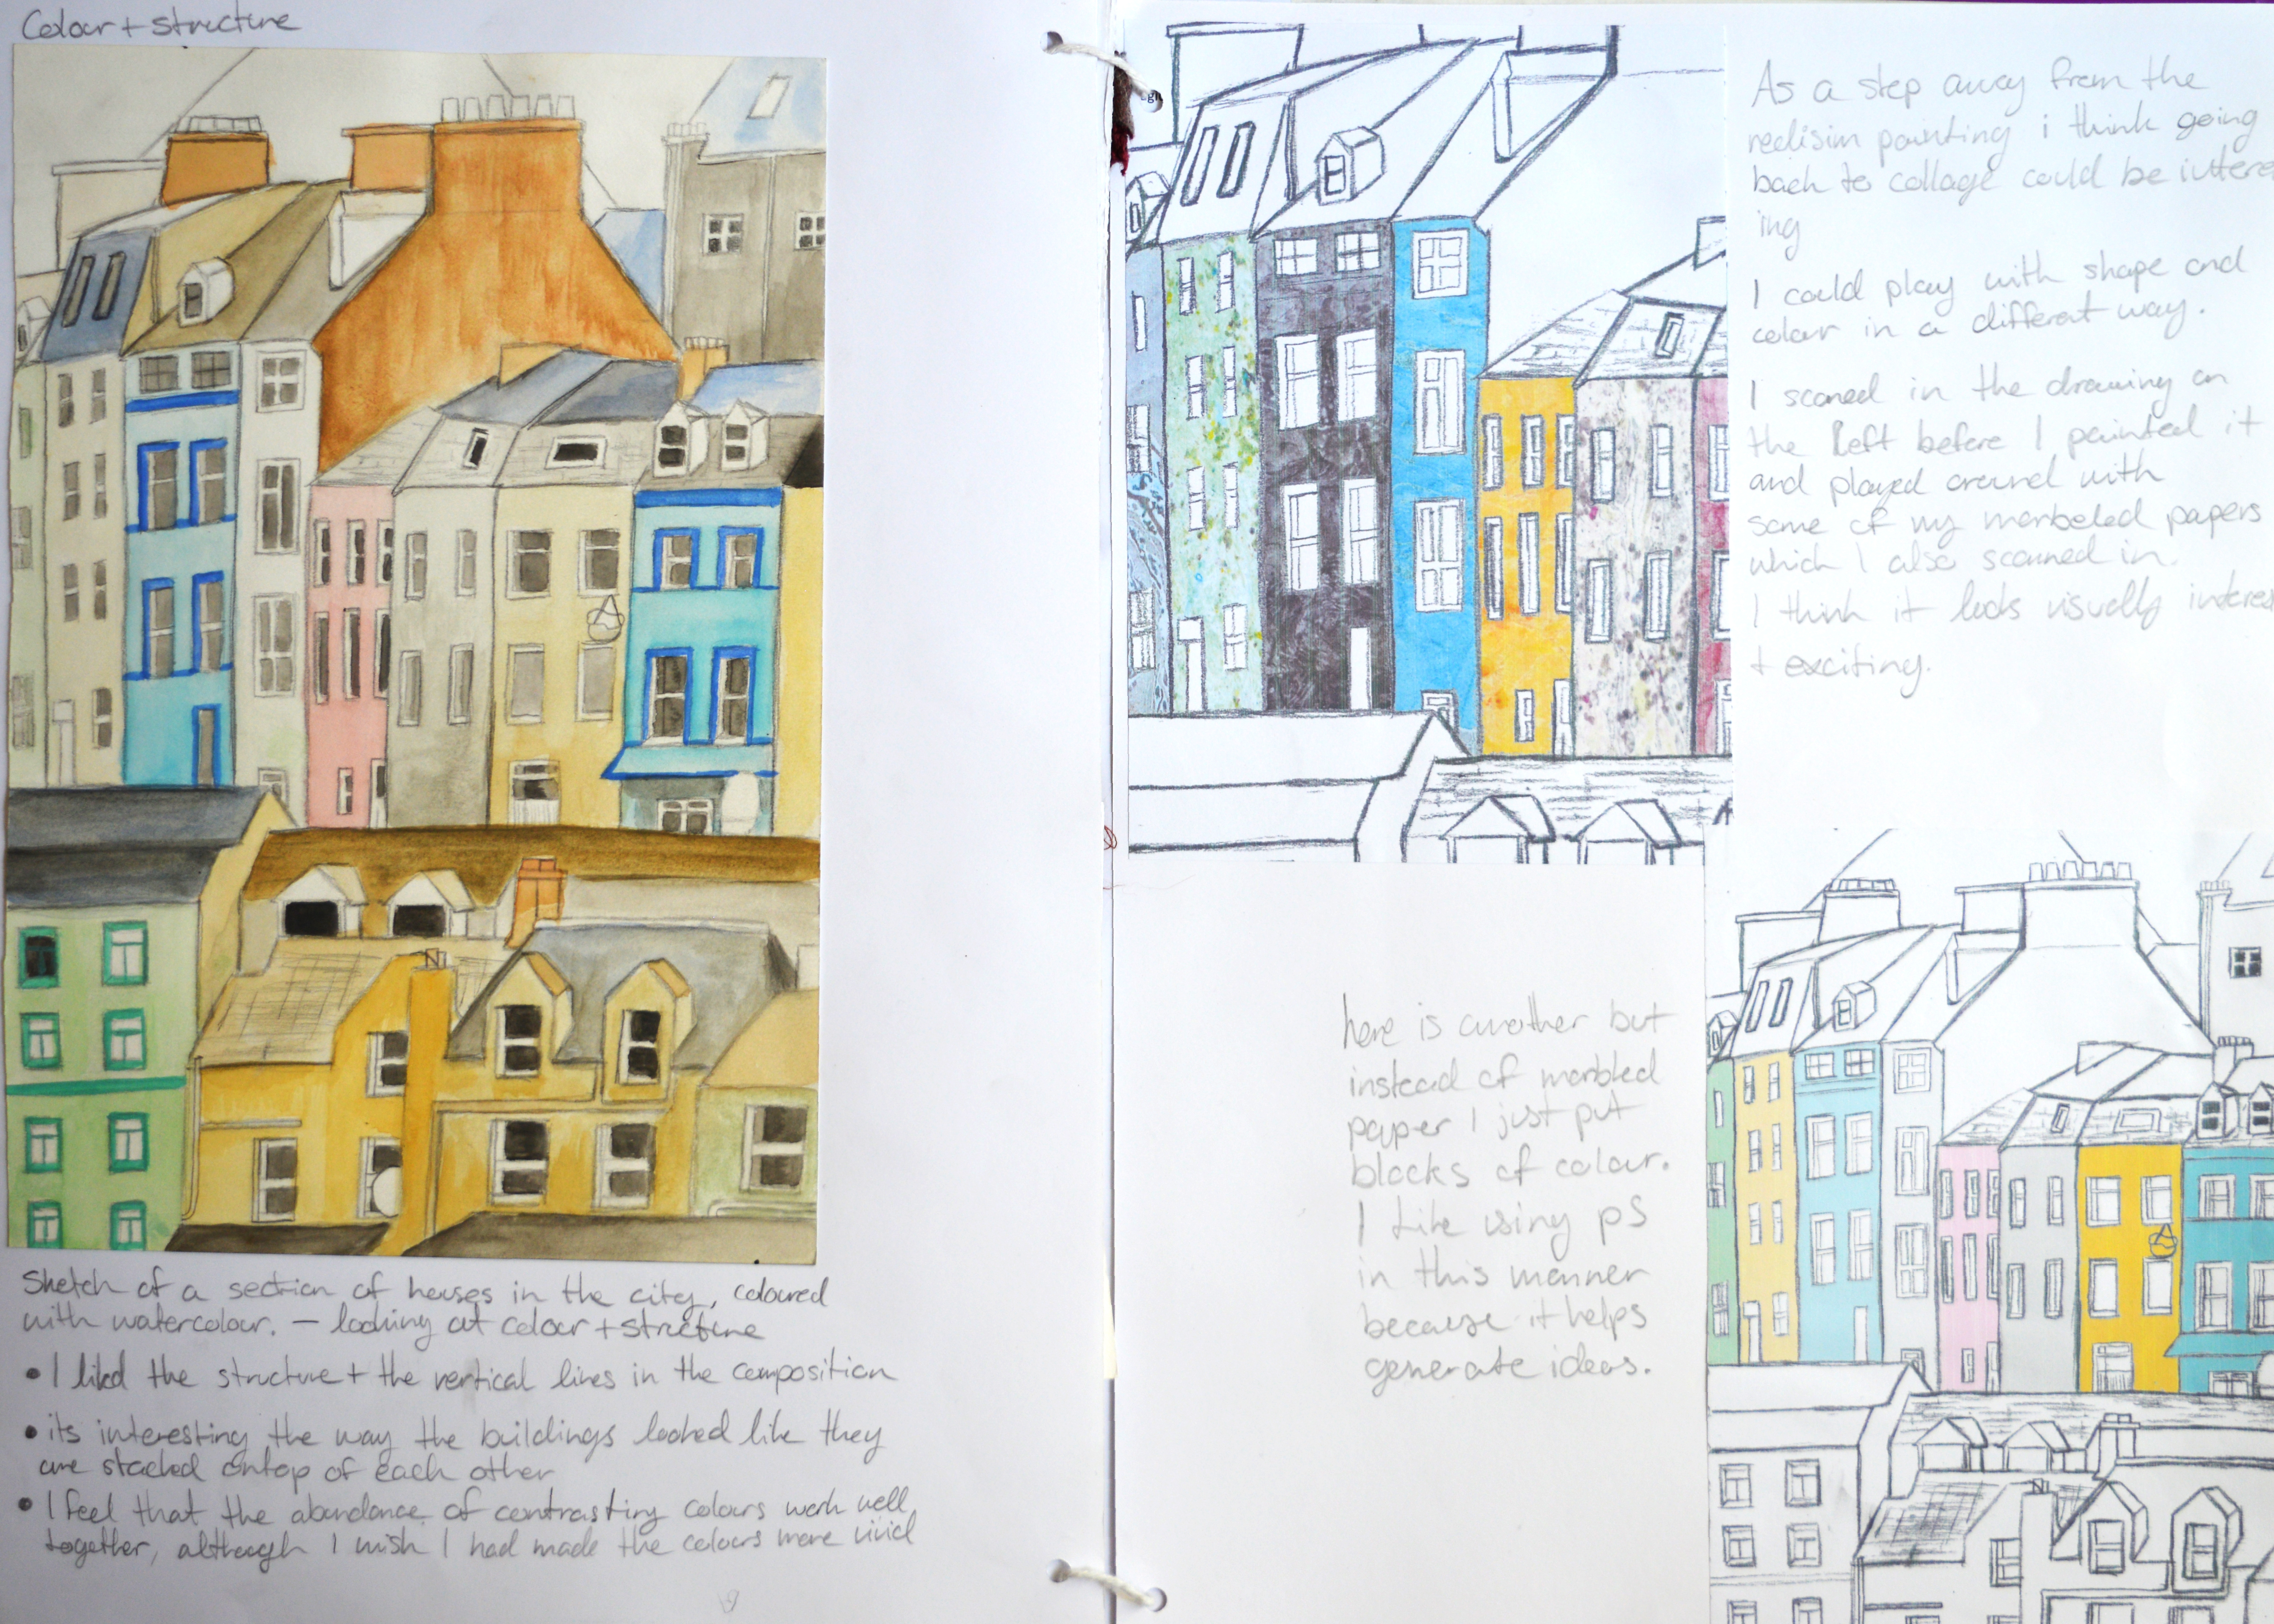 Colour + structure
Sketch of a section of houses in the city, coloured
with watercolour. – looking at colour + structure
• I liked the structure + the vertical lines in the composition
• its interesting the way the buildings looked like they
are stacked ontop of each other
• I feel that the abundance of contrasting colours work well
together, although I wish I had made the colours more vivid
As a step away from the
realisim painting i think going
back to collage could be interest
ing
I could play with shape and
colour in a different way.
I scaned in the drawing on
the left before I painted it
and played around with
some of my marbeled papers
which I also scanned in.
I think it looks visually interes
+ exciting.
here is another but
instead of marbled
paper I just put
blocks of colour.
I like using ps
in this manner
because it helps
generate ideas.